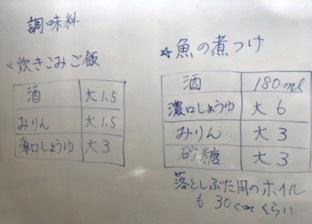 調味料
*炊きこみご飯
酒 大1.5
みりん 大1.5
薄口しょうゆ 大3
*魚の煮つけ
酒 180ml
濃口しょうゆ 大6
みりん 大3
砂糖 大3
落としぶた用のホイル
も30cmくらい